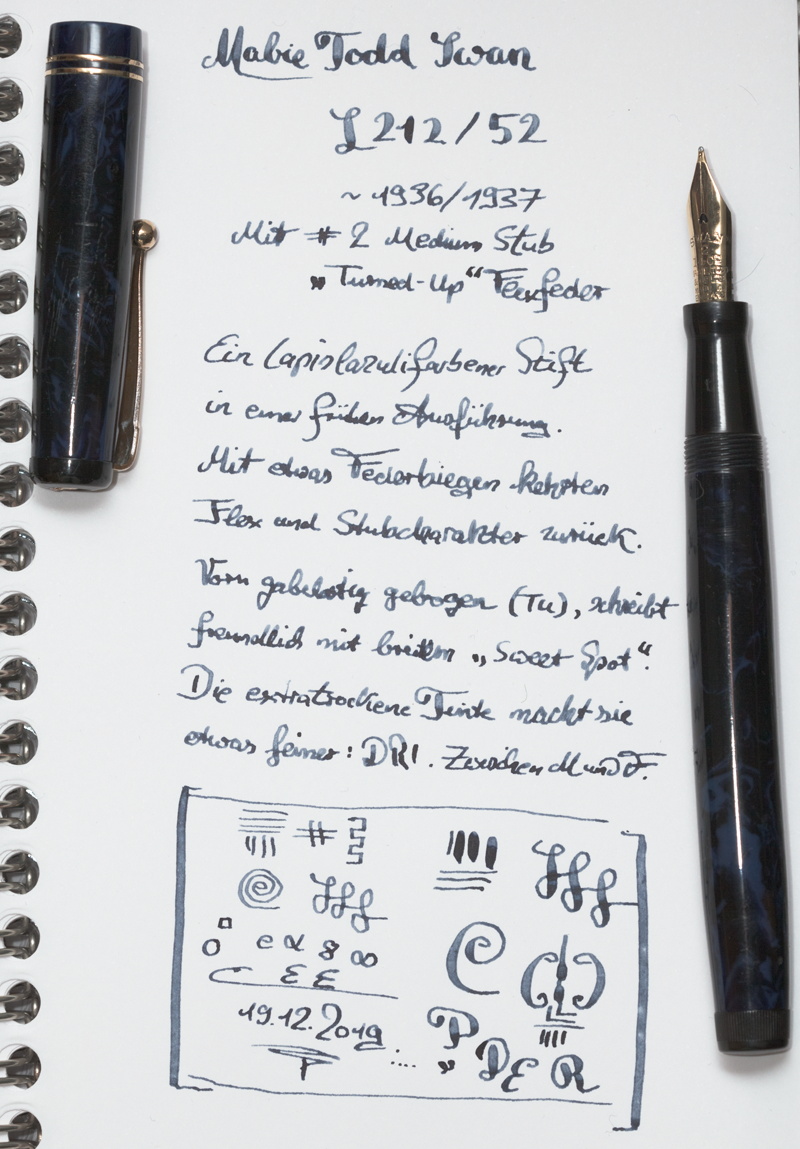 Mabie Todd Swan
L212/52
~ 1936/1937
Mit # 2 Medium Stub
„Turned-Up“ Flexfeder
Ein Lapislazulifarbener Stift
in einer frühen Ausführung.
Mit etwas Federbiegen kehrten
Flex und Stubcharakter zurück.
Vorn gebogen (TU), schreibt
freundlich mit breitem „Sweet Spot“.
Die extratrockene Tinte macht sie
etwas feiner: DRI. Zwischen M und F.
#
e α 8 ∞
19.12.2019